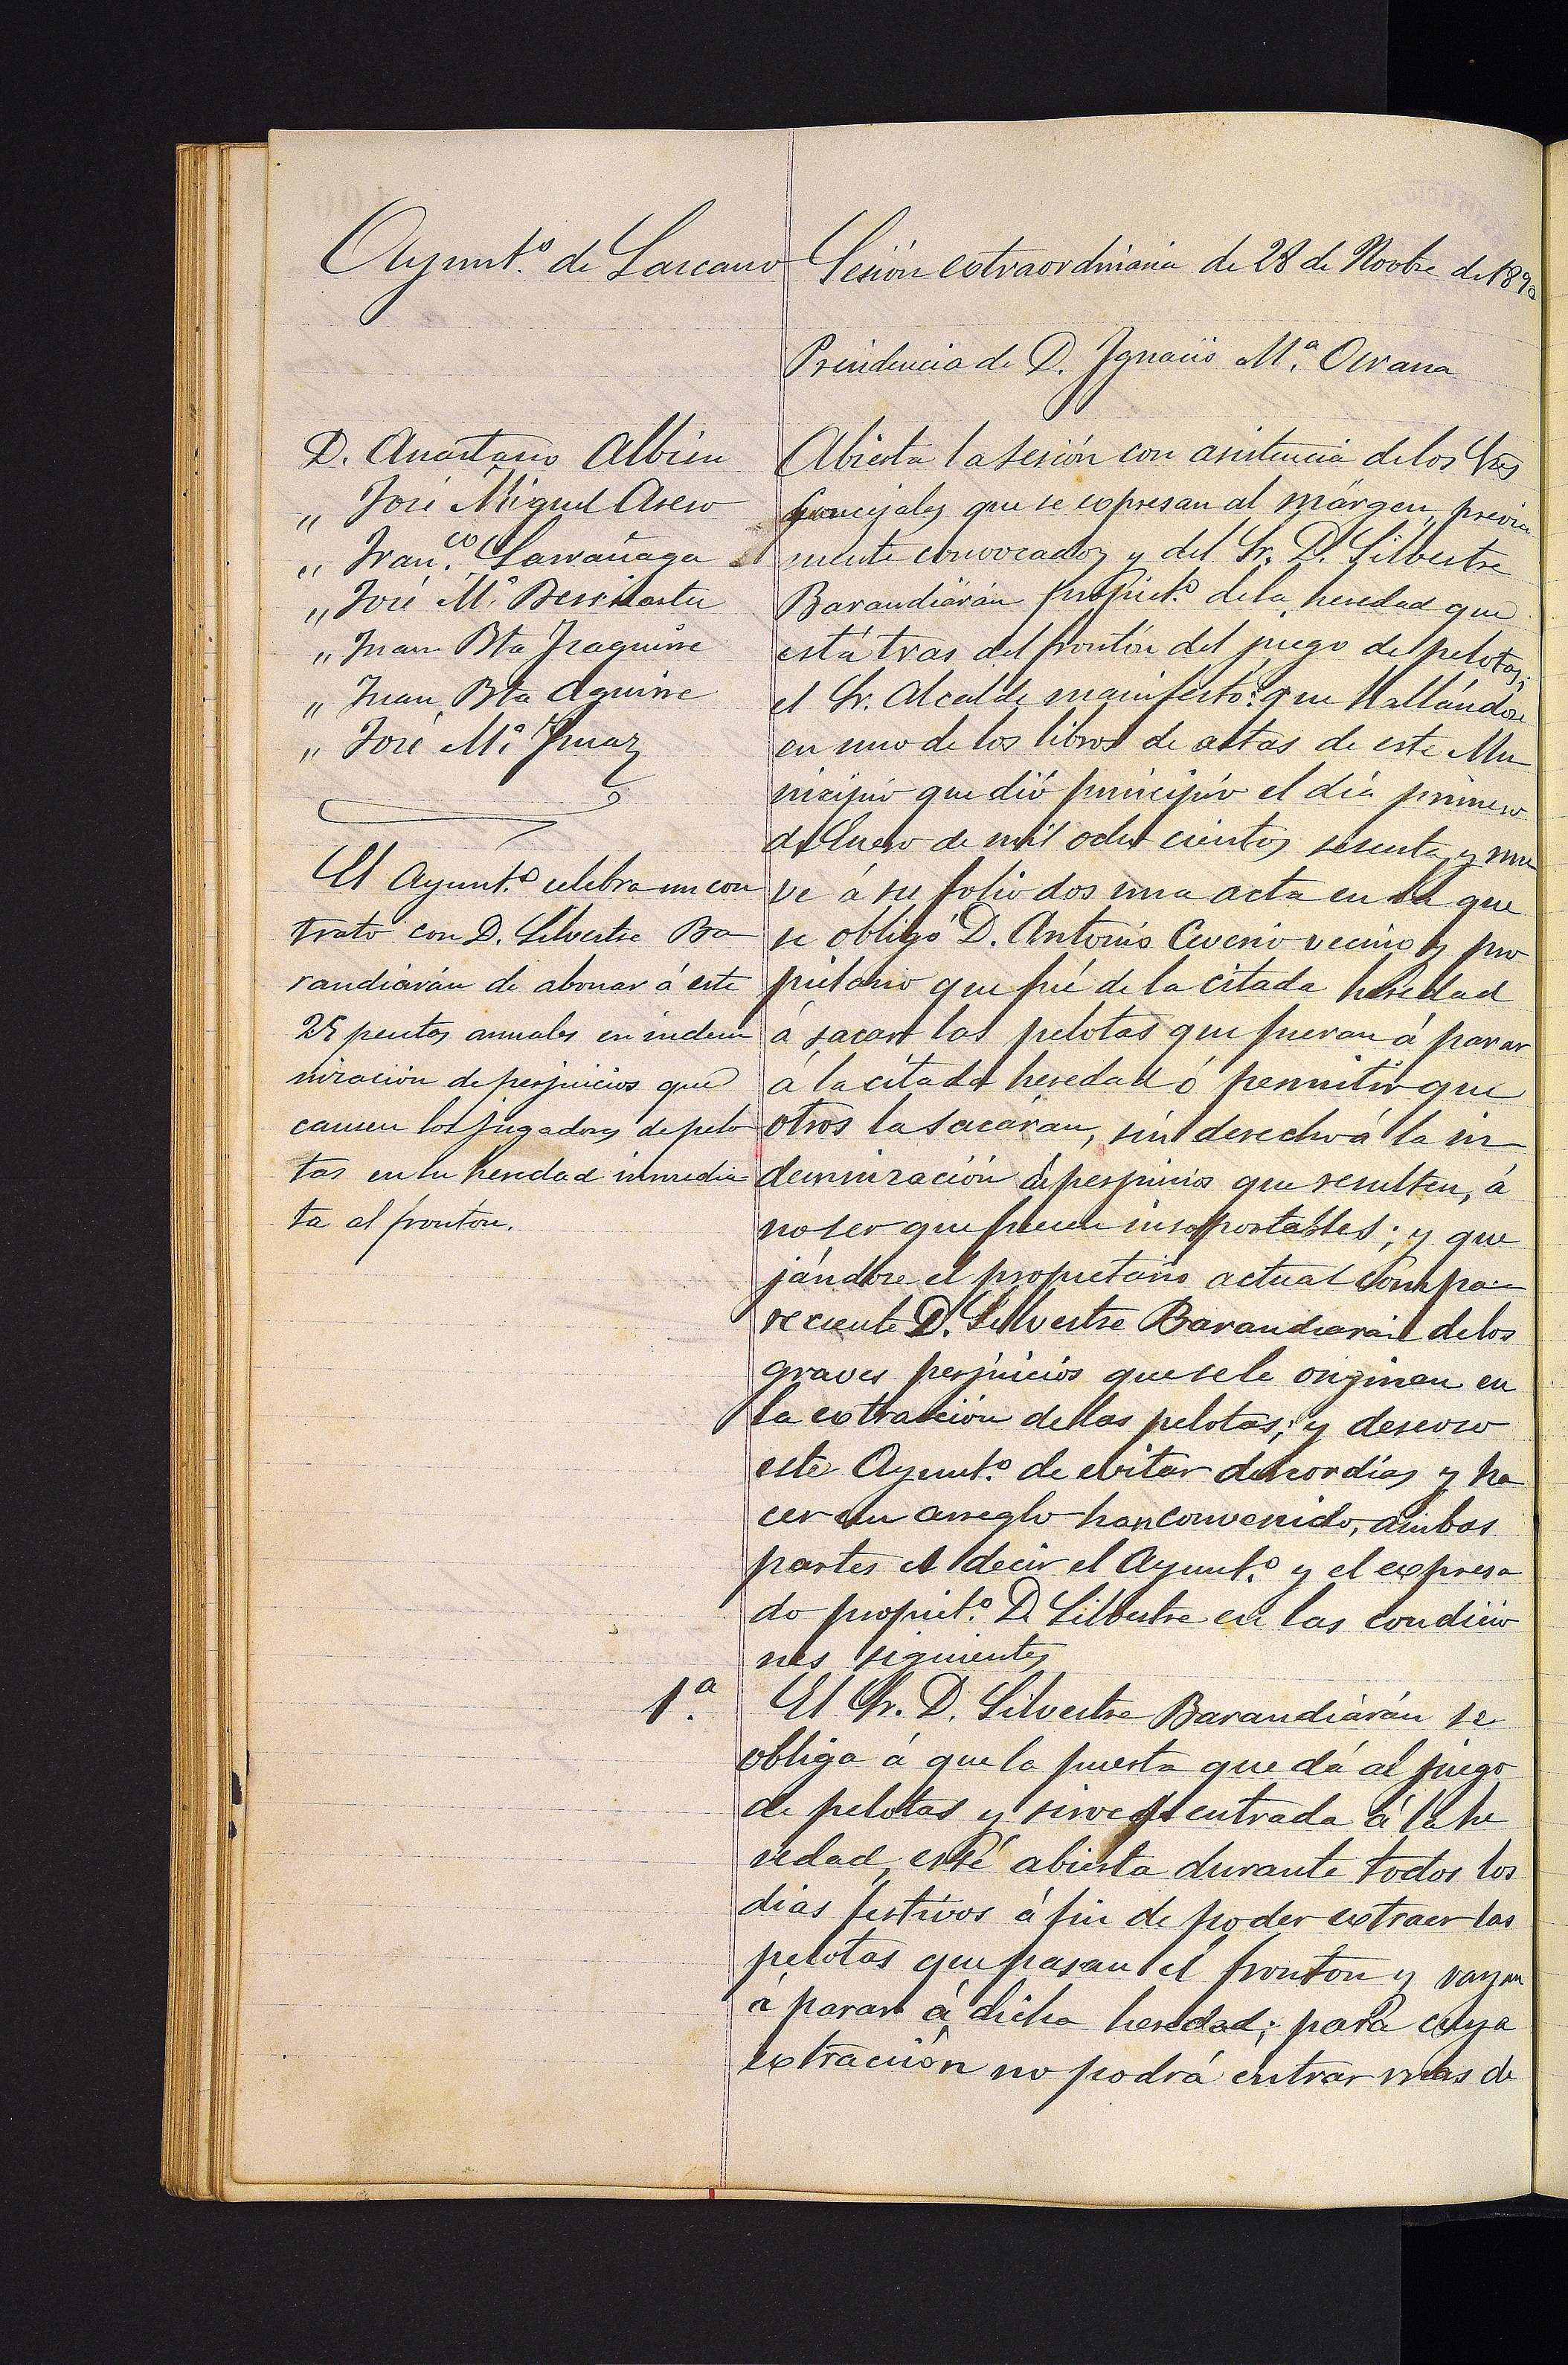 Ayunt.º de Lazcano
Sesión extraordinaria de 28 de Novbre de 1890
Presidencia de D. Ignacio M.ª
D. Anastasio Albisu
„ José Miguel
„ Fran.co Larrañaga
„ José M.ª
„ Juan Bta Iraguirre
„ Juan Bta Aguirre
„ José M.ª
El Ayunt.º celebra un con
trato con D. Silvestre Ba
randiarán de abonar á este
25 pesetas anuales en indem
nizacion de perjuicios que
causen los jugadores de pelo
tas en su heredad inmedia
ta al fronton.
Abierta la sesión con asistencia de los Sres
Concejales que se expresan al márgen, previa
mente convocados y del Sr. D. Silvestre
Barandiarán propiet.º de la heredad que
está tras del frontón del juego de pelotas;
el Sr. Alcalde manifestó: que hallándose
en uno de los libros de actas de este Mu
nicipio que dió principio el día primero
de Enero de mil ocho cientos sesenta y nue
ve á su folio dos una acta en la que
se obligó D. Antonio vecino y pro
pietario que fué de la citada heredad
á sacar las pelotas que fueran á parar
á la citada heredad ó permitir que
otros la sacáran, sin derecho á la in
demnización de perjuicios que resulten, á
no ser que fueren insoportables; y que
jándose el propietario actual compa
reciente D. Silvestre Barandiarán de los
graves perjuicios que se le originan en
la extracción de las pelotas; y deseoso
este Ayunt.º de evitar discordias y ha
cer un arreglo han convenido, ambas
partes es decir el Ayunt.º y el expresa
do propiet.º D. Silvestre en las condicio
nes siguientes
1.ª El Sr. D. Silvestre Barandiárán se
obliga á que la puerta que dá al juego
de pelotas y sirve de entrada á la he
redad, esté abierta durante todos los
dias festivos á fin de poder extraer las
pelotas que pasan el fronton y vayan
á parar á dicha heredad; para cuya
extracción no podrá entrar mas de